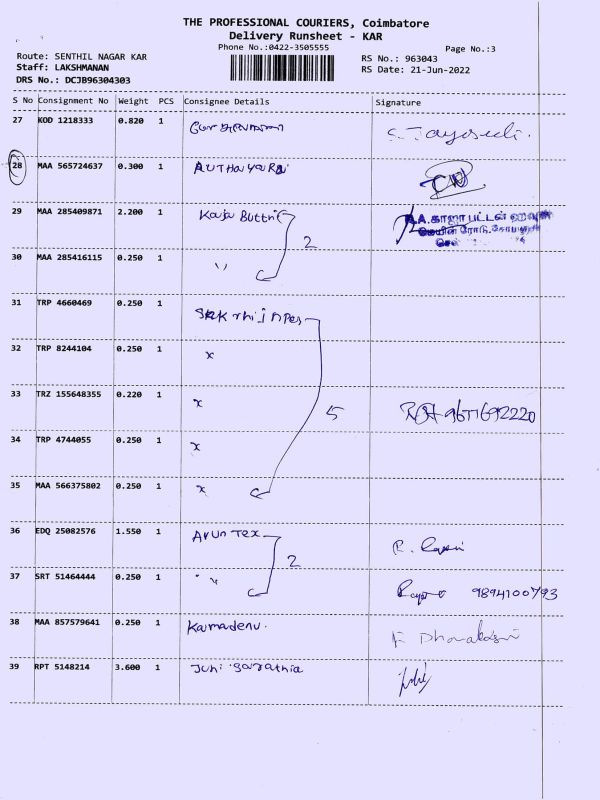 THE PROFESSIONAL COURIERS, Coimbatore
Delivery Runsheet - KAR
Phone No.:0422-3505555
Page No.:3
Route: SENTHIL NAGAR KAR
Staff: LAKSHMANAN
DRS No.: DCJB96304303
RS No.: 963043
RS Date: 21-Jun-2022
S No Consignment No Weight PCS Consignee Details Signature
27 KOD 1218333 0.820 1
28 MAA 565724637 0.300 1
29 MAA 285409871 2.200 1 Kaja Buttn
2
30 MAA 285416115 0.250 1 〃
31 TRP 4660469 0.250 1
32 TRP 8244104 0.250 1 x
33 TRZ 155648355 0.220 1 x 5 9677692220
34 TRP 4744055 0.250 1 x
35 MAA 566375802 0.250 1 x
36 EDQ 25082576 1.550 1 Arun Tex
2
37 SRT 51464444 0.250 1 〃 9894100793
38 MAA 857579641 0.250 1 Kamadenu.
39 RPT 5148214 3.600 1